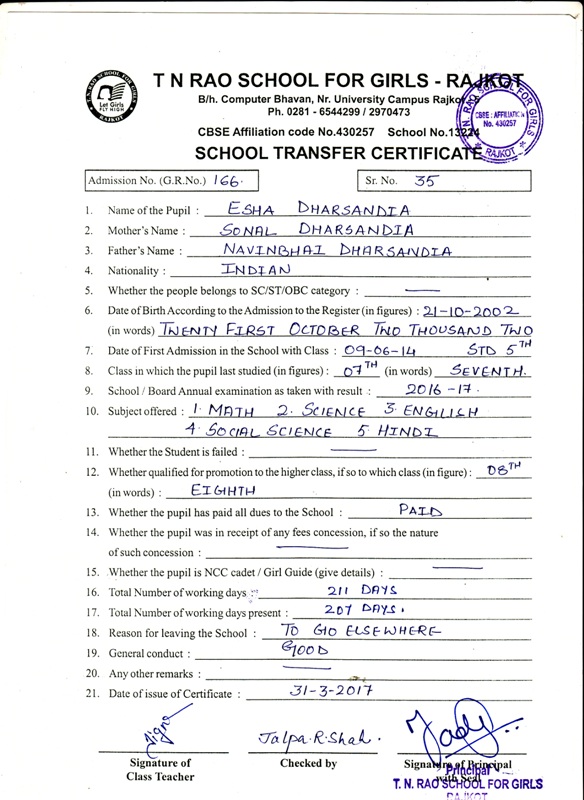 T. N. RAO SCHOOL FOR GIRLS
Let Girls
FLY HIGH
RAJKOT
T N RAO SCHOOL FOR GIRLS - RAJKOT
B/h. Computer Bhavan, Nr. University Campus Rajkot
Ph. 0281 - 6544299 / 2970473
CBSE Affiliation code No.430257 School No.13224
T. N. RAO SCHOOL FOR GIRLS
CBSE : AFFILIATION
No. 430257
RAJKOT
SCHOOL TRANSFER CERTIFICATE
Admission No. (G.R.No.) 166. Sr. No. 35
1. Name of the Pupil : ESHA DHARSANDIA
2. Mother's Name : SONAL DHARSANDIA
3. Father's Name : NAVINBHAI DHARSANDIA
4. Nationality : INDIAN
5. Whether the people belongs to SC/ST/OBC category : —
6. Date of Birth According to the Admission to the Register (in figures) : 21-10-2002
(in words) TWENTY FIRST OCTOBER TWO THOUSAND TWO
7. Date of First Admission in the School with Class : 09-06-14 STD 5TH
8. Class in which the pupil last studied (in figures) : 07TH (in words) SEVENTH.
9. School / Board Annual examination as taken with result : 2016-17.
10. Subject offered : 1. MATH 2. SCIENCE 3. ENGLISH
4. SOCIAL SCIENCE 5. HINDI
11. Whether the Student is failed : —
12. Whether qualified for promotion to the higher class, if so to which class (in figure) : 08TH
(in words) : EIGHTH
13. Whether the pupil has paid all dues to the School : PAID
14. Whether the pupil was in receipt of any fees concession, if so the nature
of such concession : —
15. Whether the pupil is NCC cadet / Girl Guide (give details) : —
16. Total Number of working days : 211 DAYS
17. Total Number of working days present : 207 DAYS.
18. Reason for leaving the School : TO GO ELSEWHERE
19. General conduct : GOOD
20. Any other remarks : —
21. Date of issue of Certificate : 31-3-2017
Jalpa.R.Shah.
Signature of Class Teacher
Checked by
Signature of Principal
with Seal
Principal
T. N. RAO SCHOOL FOR GIRLS
RAJKOT